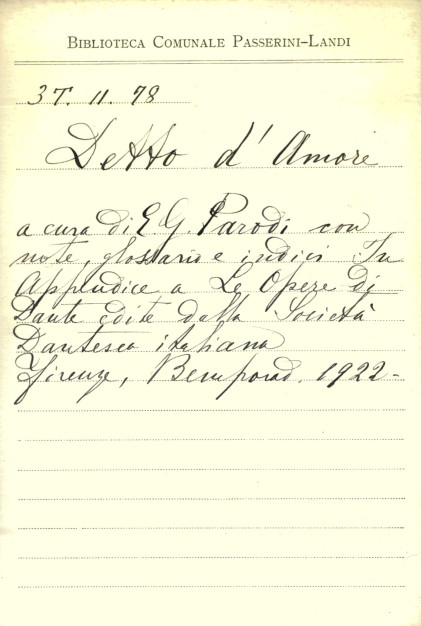 BIBLIOTECA COMUNALE PASSERINI-LANDI
3T. 11. 78
Detto d'Amore
a cura di E. G. Parodi con
note, glossario e indici In
Appendice a Le Opere di
Dante edite dalla Società
Dantesca italiana
Firenze, Bemporad. 1922-